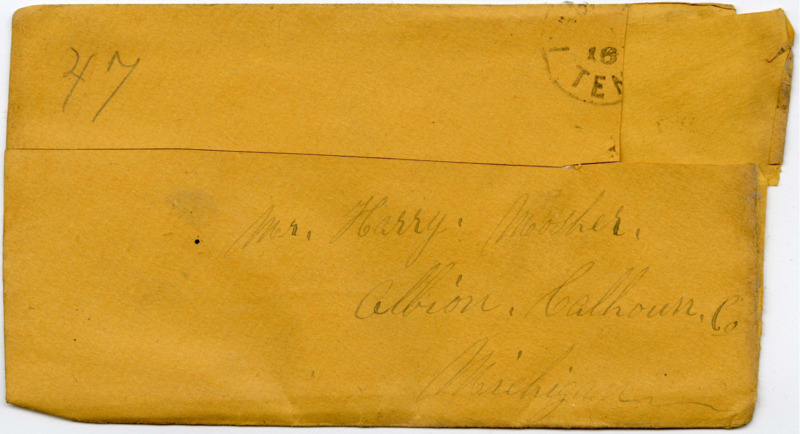 47
16
TEN
Mr. Harry. Mosher.
Albion, Calhoun, Co
Michigan